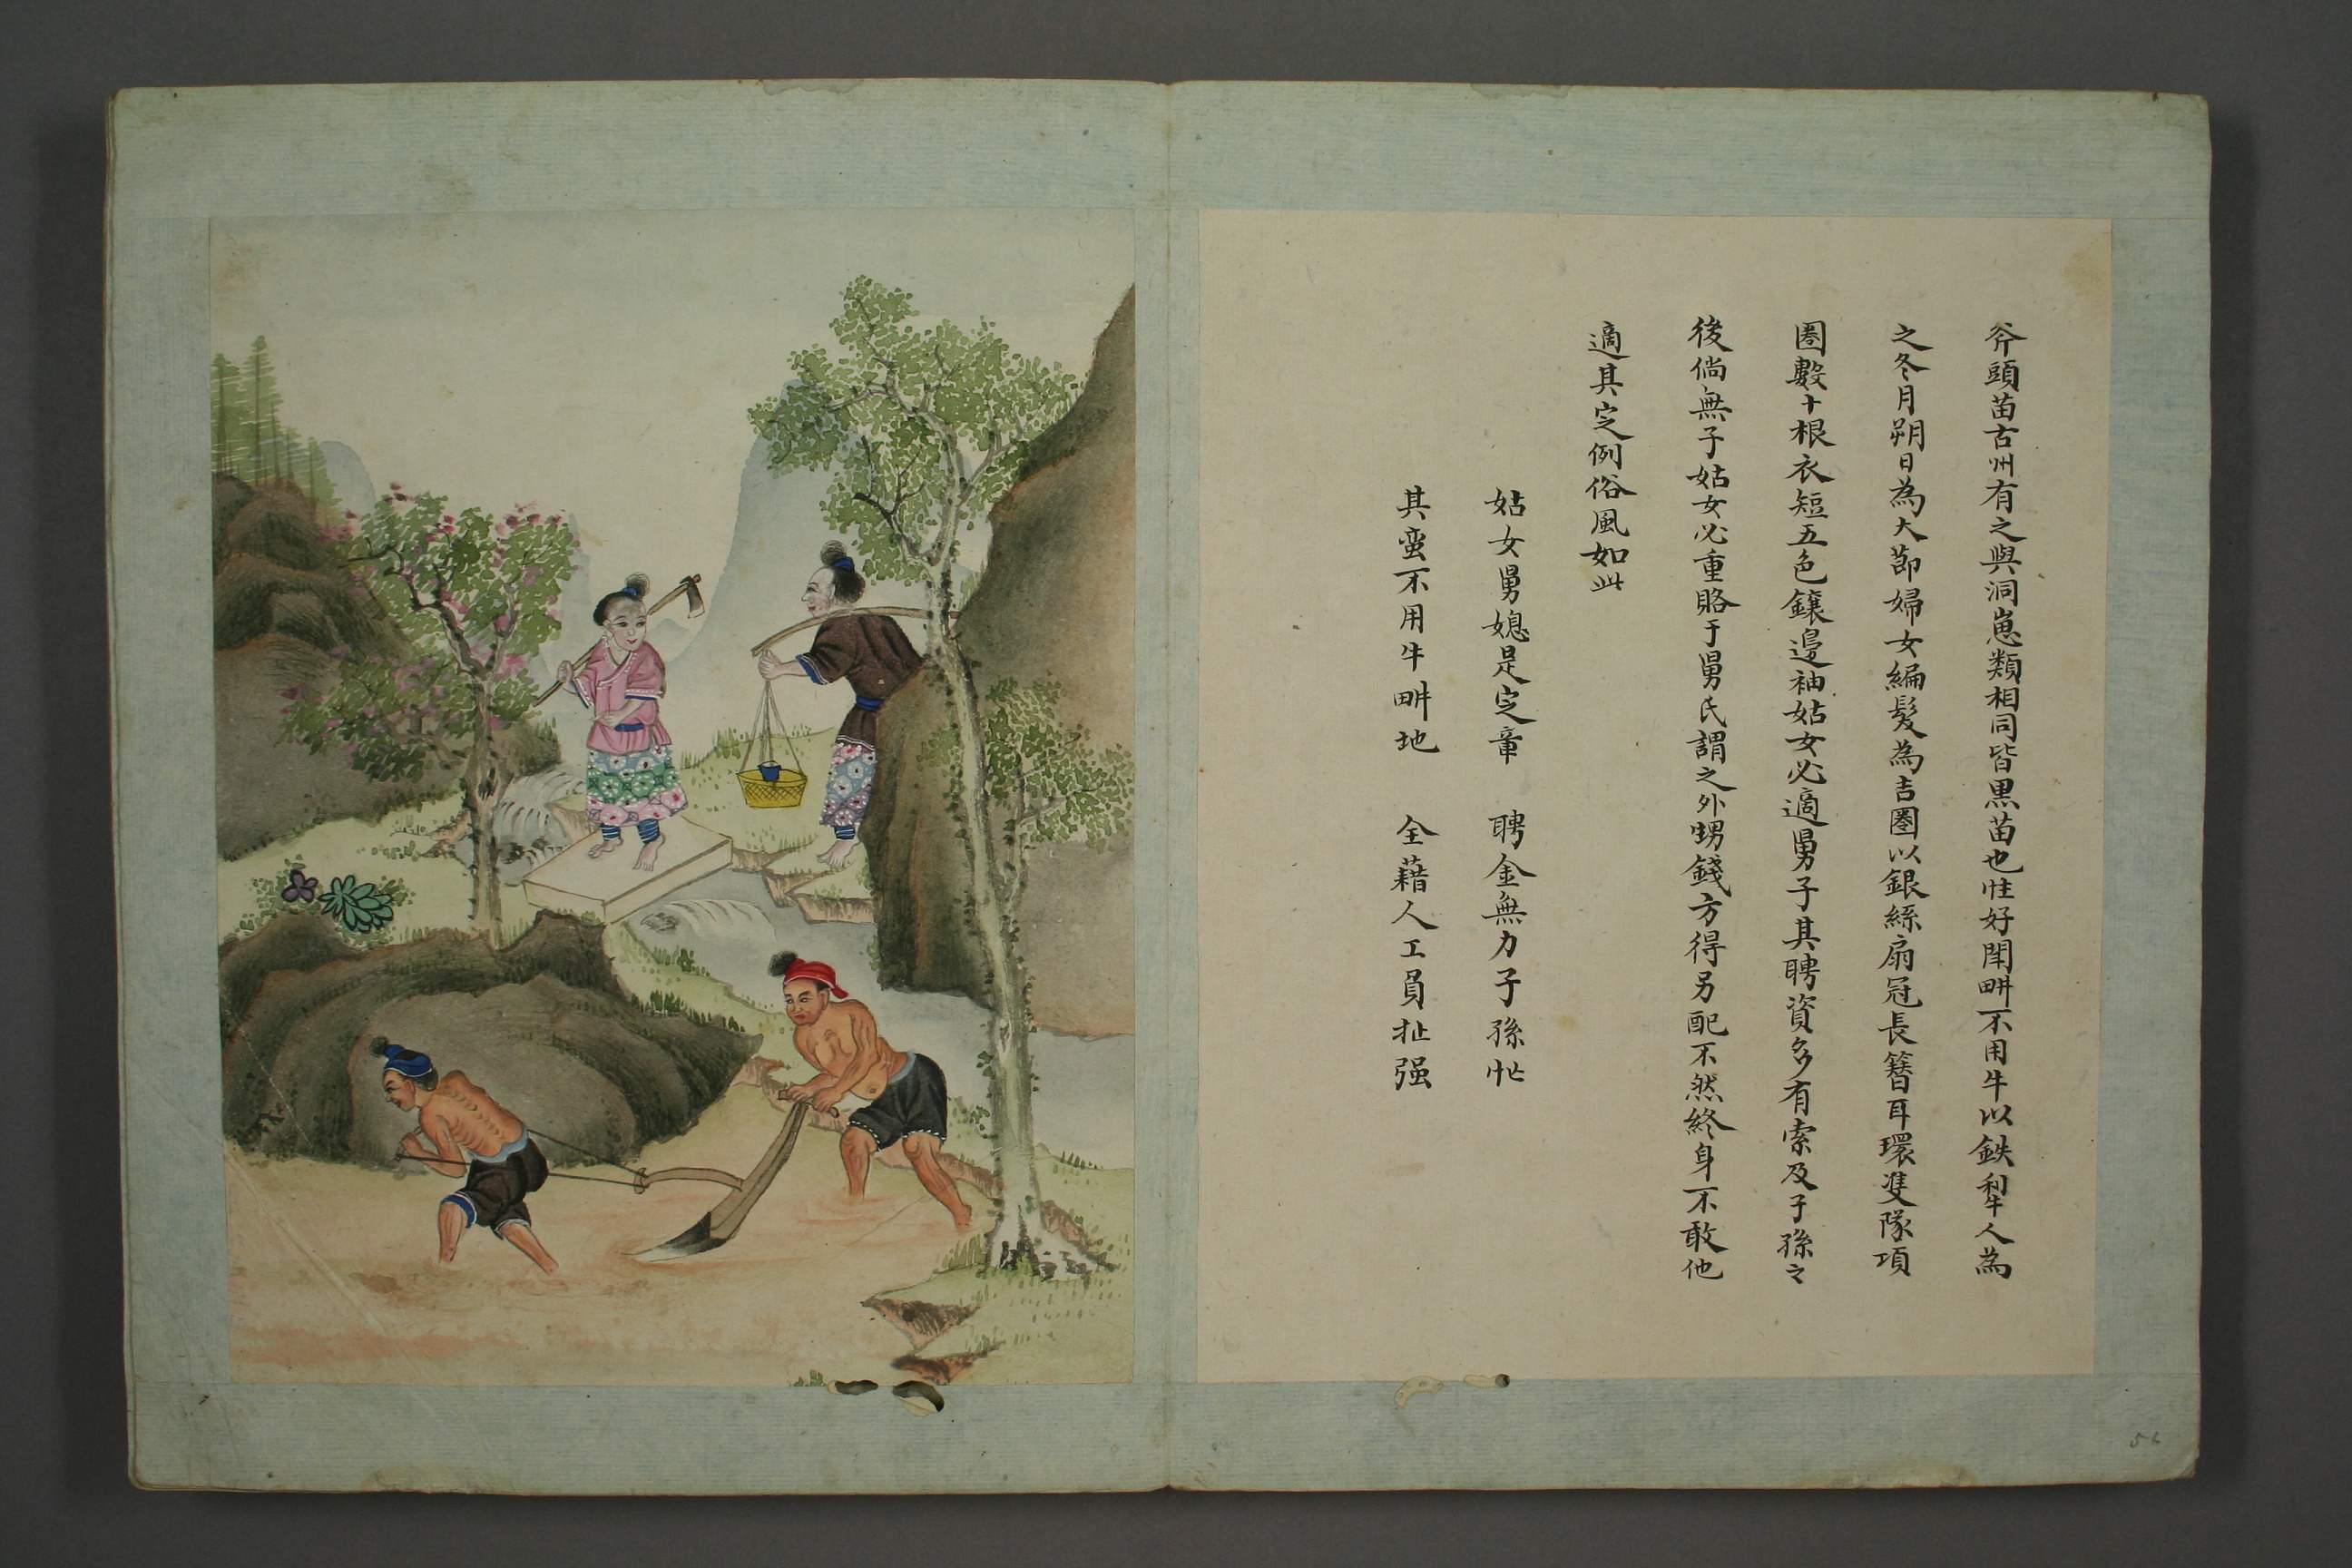 斧頭苗古州有之與洞崽類相同皆黒苗也性好閗畊不用牛以鉄犁人為
之冬月朔日為大莭婦女編髮為吉圈以銀絲扇冠長簪耳環䨇隊項
圈數十根衣短五色鑲邊袖姑女必適舅子其聘資多有索及子孫之
後倘無子姑女必重賂于舅氏謂之外甥錢方得另配不然終身不敢他
適其㝎例俗風如此
姑女舅媳是㝎章　聘金無力子孫忙
其蛮不用牛畊地　全藉人工員扯强
56